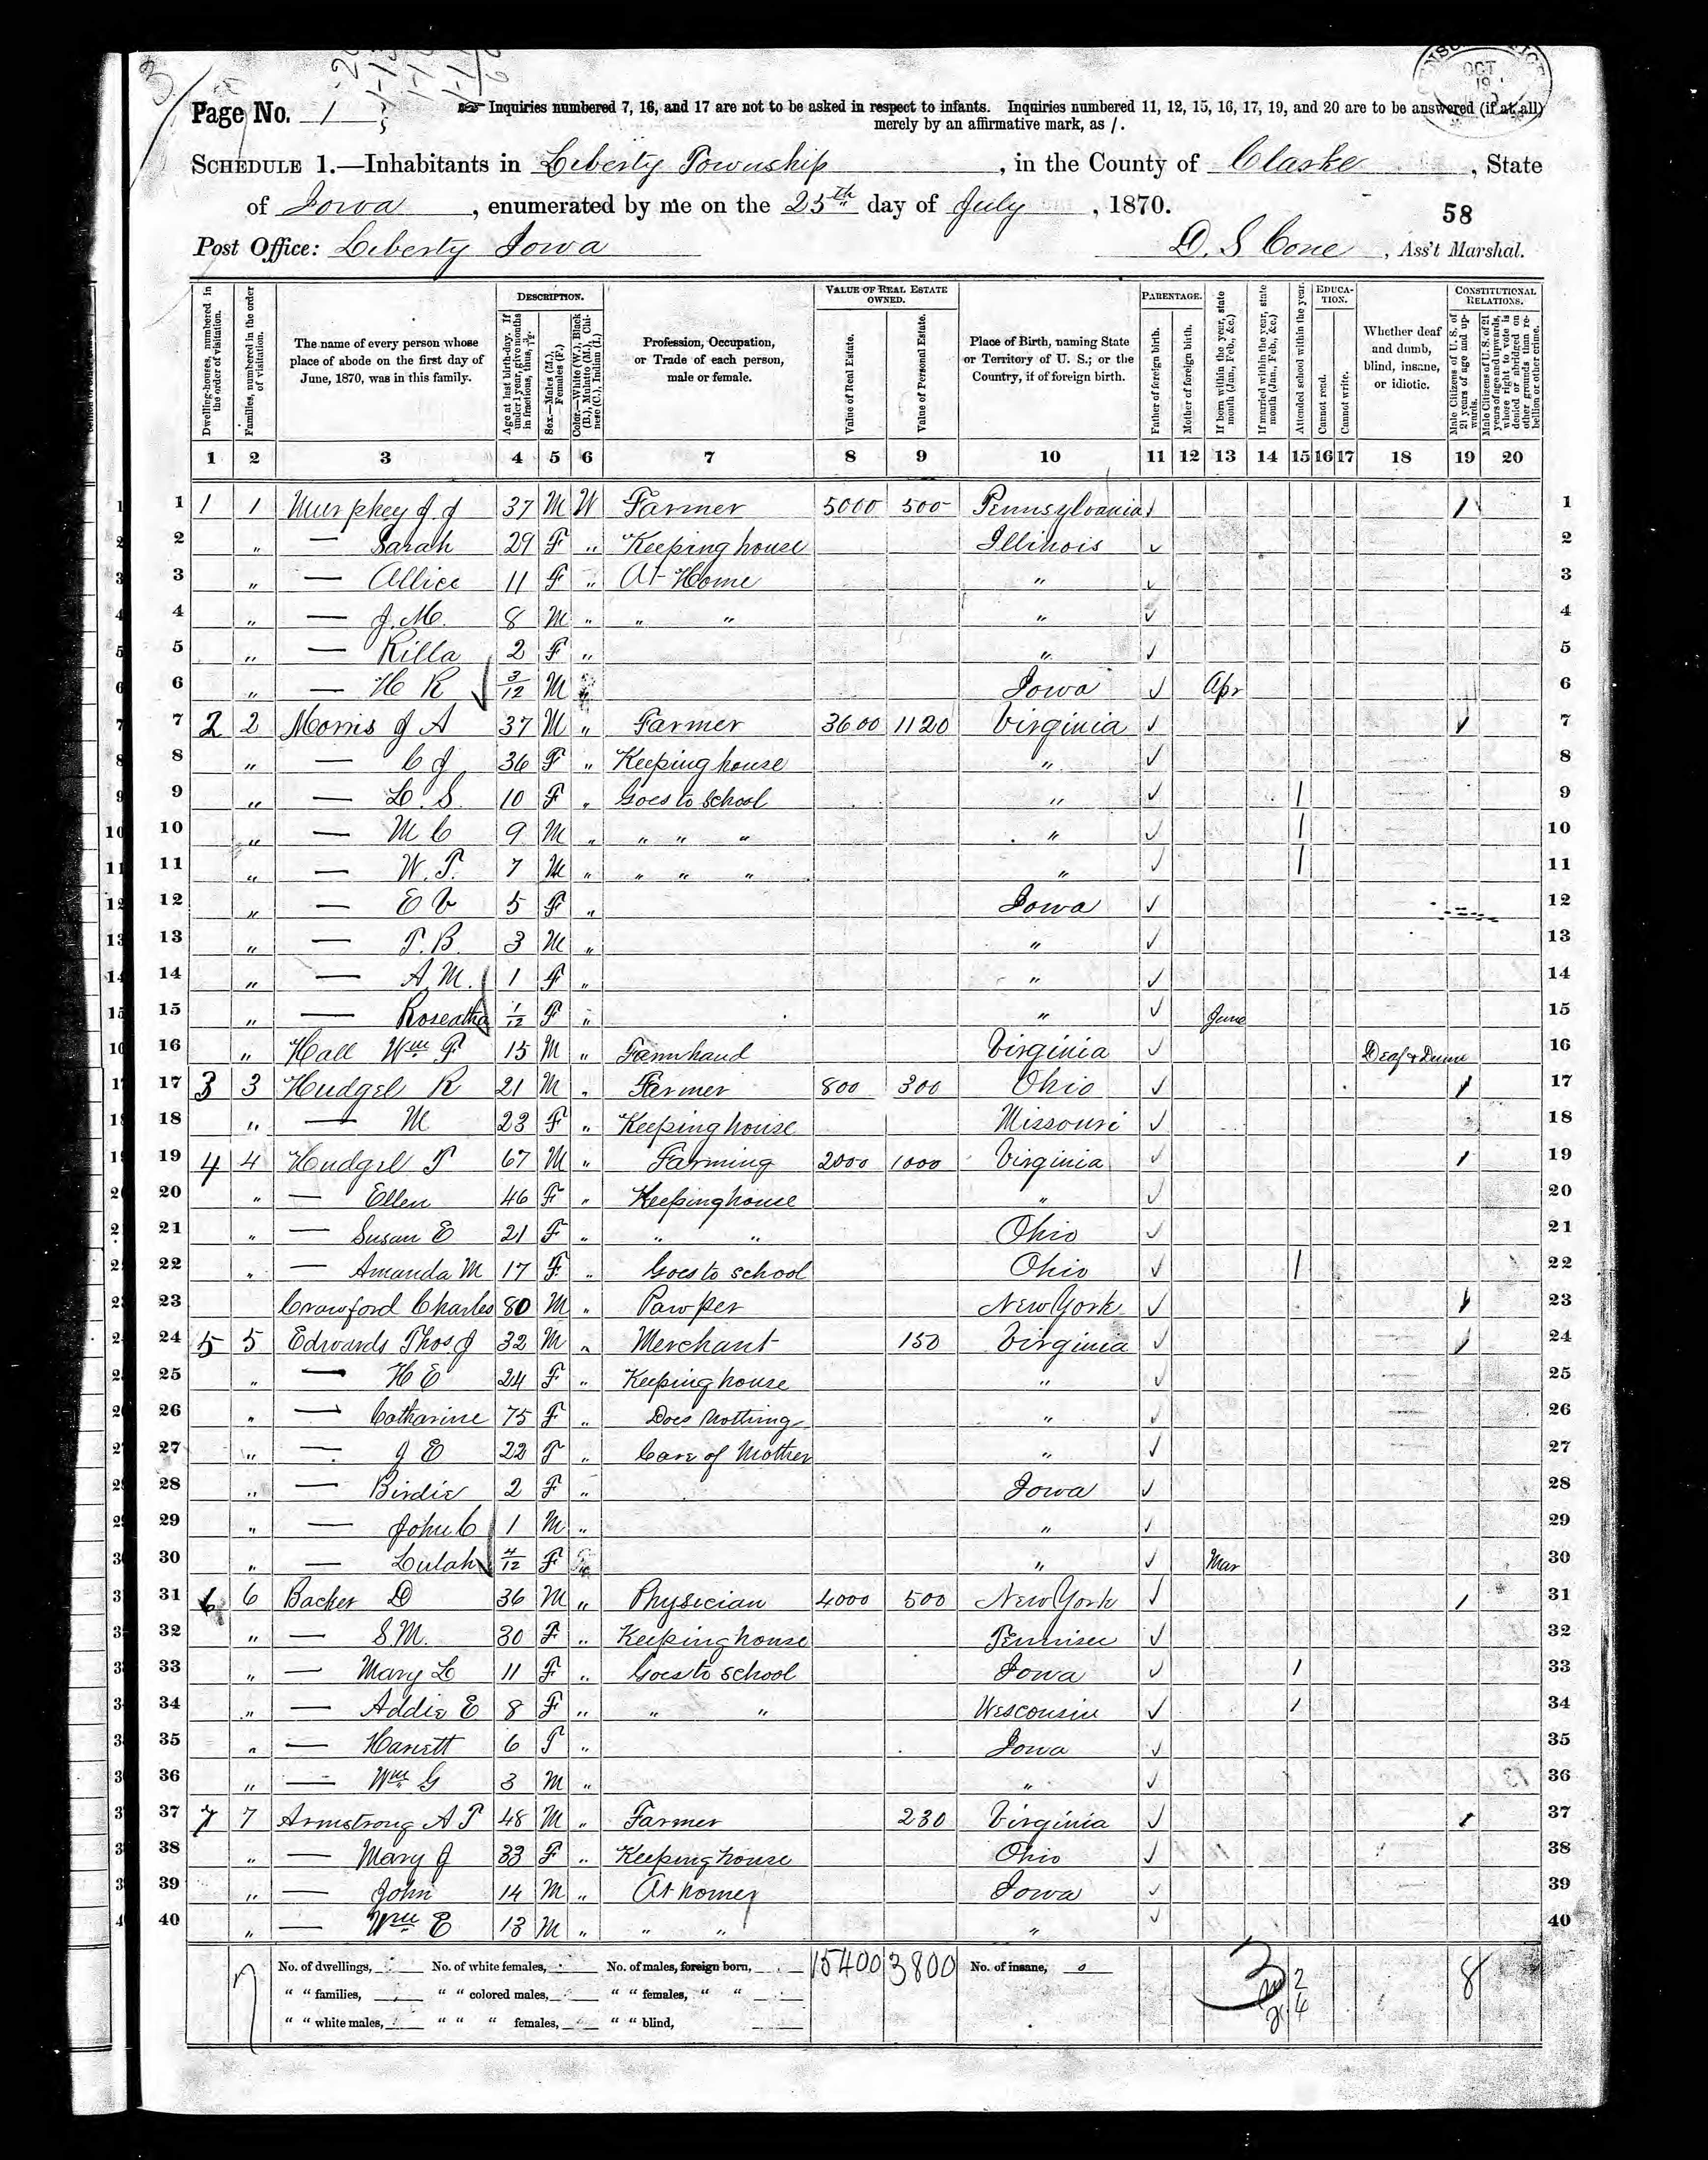 Page No. 1
Inquiries numbered 7, 16, and 17 are not to be asked in respect to infants. Inquiries numbered 11, 12, 15, 16, 17, 19, and 20 are to be answered (if at all)
merely by an affirmative mark, as /.
OCT
SCHEDULE 1.—Inhabitants in Liberty Township, in the County of Clarke, State
of Iowa, enumerated by me on the 25th day of July, 1870.
58
Post Office: Liberty Iowa D. S Cone, Ass't Marshal.
Dwelling-houses, numbered in the order of visitation.
Families, numbered in the order of visitation.
The name of every person whose place of abode on the first day of June, 1870, was in this family.
DESCRIPTION.
Age at last birth-day. If under 1 year, give months in fractions, thus, 3/12
Sex.—Males (M.), Females (F.)
Color.—White (W.), Black (B.), Mulatto (M.), Chinese (C.), Indian (I.)
Profession, Occupation, or Trade of each person, male or female.
VALUE OF REAL ESTATE OWNED.
Value of Real Estate.
Value of Personal Estate.
Place of Birth, naming State or Territory of U. S.; or the Country, if of foreign birth.
PARENTAGE.
Father of foreign birth.
Mother of foreign birth.
If born within the year, state month (Jan., Feb., &c.)
If married within the year, state month (Jan., Feb., &c.)
Attended school within the year.
EDUCATION.
Cannot read.
Cannot write.
Whether deaf and dumb, blind, insane, or idiotic.
CONSTITUTIONAL RELATIONS.
Male Citizens of U. S. of 21 years of age and upwards.
Male Citizens of U. S. of 21 years of age and upwards, whose right to vote is denied or abridged on other grounds than rebellion or other crime.
1 2 3 4 5 6 7 8 9 10 11 12 13 14 15 16 17 18 19 20
1 1 1 Murphey J. J 37 M W Farmer 5000 500 Pennsylvania / 1
2 " — Sarah 29 F " Keeping house Illinois 2
3 " — Allice 11 F " At Home " 3
4 " — J. M. 8 M " " " " 4
5 " — Rilla 2 F " " 5
6 " — H R 3/12 M " Iowa Apr 6
7 2 2 Morris J A 37 M " Farmer 3600 1120 Virginia / 7
8 " — C J 36 F " Keeping house " 8
9 " — L. S. 10 F " Goes to School " / 9
10 " — M C 9 M " " " " " / 10
11 " — W. T. 7 M " " " " " / 11
12 " — E V 5 F " Iowa 12
13 " — T. B. 3 M " " 13
14 " — A. M. 1 F " " 14
15 " — Roseatha 1/12 F " " June 15
16 " Hall Wm F 15 M " Farmhand Virginia Deaf & Dum 16
17 3 3 Hudgel R 21 M " Farmer 800 300 Ohio / 17
18 " — M 23 F " Keeping house Missouri 18
19 4 4 Hudgel T 67 M " Farming 2000 1000 Virginia / 19
20 " — Ellen 46 F " Keeping house " 20
21 " — Susan E 21 F " " " Ohio 21
22 " — Amanda M 17 F " Goes to school Ohio / 22
23 Crawford Charles 80 M " Pawper New York / 23
24 5 5 Edwards Thos J 32 M " Merchant 150 Virginia / 24
25 " — H E 24 F " Keeping house " 25
26 " — Catharine 75 F " Does Nothing " 26
27 " — J E 22 F " Care of Mother " 27
28 " — Birdie 2 F " Iowa 28
29 " — John C 1 M " " 29
30 " — Lulah 4/12 F " " Mar 30
31 6 6 Backer D 36 M " Physician 4000 500 New York / 31
32 " — S. M. 30 F " Keeping house Tennisee 32
33 " — Mary L 11 F " Goes to school Iowa / 33
34 " — Addie E 8 F " " " Wesconsin / 34
35 " — Hariett 6 F " Iowa 35
36 " — Wm G 3 M " " 36
37 7 7 Armstrong A T 48 M " Farmer 230 Virginia / 37
38 " — Mary J 33 F " Keeping house Ohio 38
39 " — John 14 M " At home Iowa 39
40 " — Wm E 13 M " " " " 40
No. of dwellings, No. of white females, No. of males, foreign born, 15400 3800 No. of insane, 0 3 2 8
" " families, " " colored males, " " females, " " 4
" " white males, " " " females, " " blind,